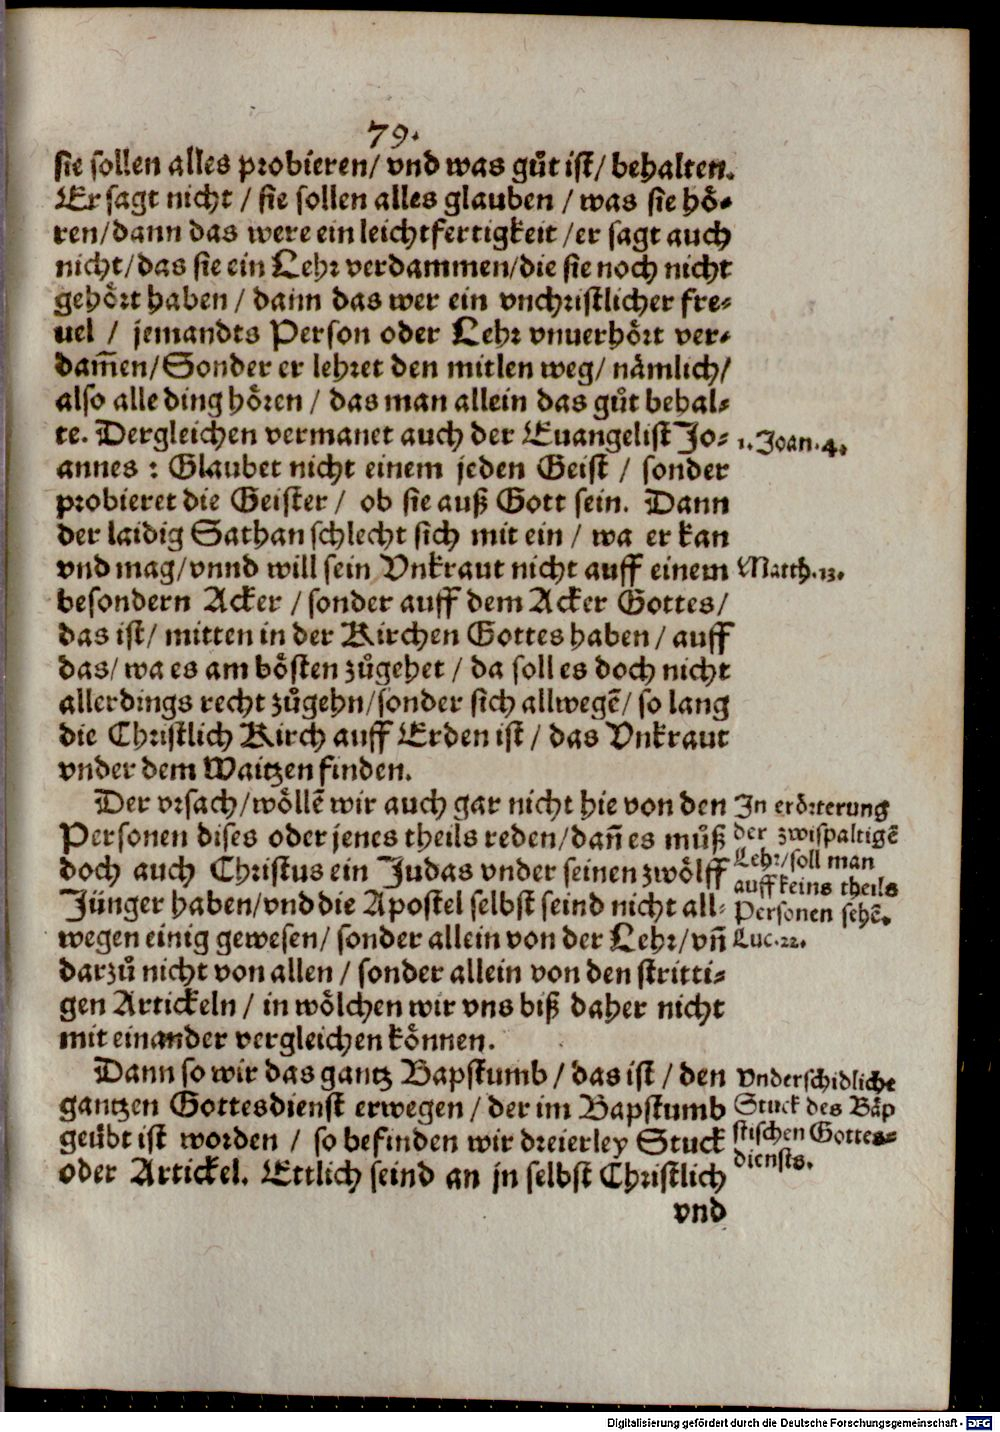 79.
sie sollen alles probieren/ vnd was gůt ist/ behalten.
Er sagt nicht / sie sollen alles glauben / was sie hoͤ-
ren/dann das were ein leichtfertigkeit /er sagt auch
nicht/das sie ein Lehr verdammen/die sie noch nicht
gehoͤrt haben / dann das wer ein vnchristlicher fre-
uel / jemandts Person oder Lehr vnuerhoͤrt ver-
dam̃en/Sonder er lehret den mitlen weg/ naͤmlich/
also alle ding hoͤren / das man allein das gůt behal-
te. Dergleichen vermanet auch der Euangelist Jo-
1. Joan. 4.
annes : Glaubet nicht einem jeden Geist / sonder
probieret die Geister / ob sie auß Gott sein. Dann
der laidig Sathan schlecht sich mit ein / wa er kan
vnd mag/vnnd will sein Vnkraut nicht auff einem
Matth. 13.
besondern Acker / sonder auff dem Acker Gottes/
das ist/ mitten in der Kirchen Gottes haben / auff
das/ wa es am boͤsten zůgehet / da soll es doch nicht
allerdings recht zůgehn/sonder sich allwegẽ/ so lang
die Christlich Kirch auff Erden ist / das Vnkraut
vnder dem Waitzen finden.
Der vrsach/woͤllẽ wir auch gar nicht hie von den
Personen dises oder jenes theils reden/dañ es můß
doch auch Christus ein Judas vnder seinen zwoͤlff
Jünger haben/vnd die Apostel selbst seind nicht all-
wegen einig gewesen/ sonder allein von der Lehr/vñ
darzů nicht von allen / sonder allein von den stritti-
gen Artickeln / in woͤlchen wir vns biß daher nicht
mit einander vergleichen koͤnnen.
In eroͤrterung
der zwispaltigẽ
Lehr/soll man
auff keins theils
Personen sehẽ.
Luc. 22.
Dann so wir das gantz Bapstumb / das ist / den
gantzen Gottesdienst erwegen / der im Bapstumb
geübt ist worden / so befinden wir dreierley Stuck
oder Artickel. Ettlich seind an jn selbst Christlich
Vnderschidliche
Stuck des Baͤp
stischen Gottes-
diensts.
vnd
Digitalisierung gefördert durch die Deutsche Forschungsgemeinschaft - DFG